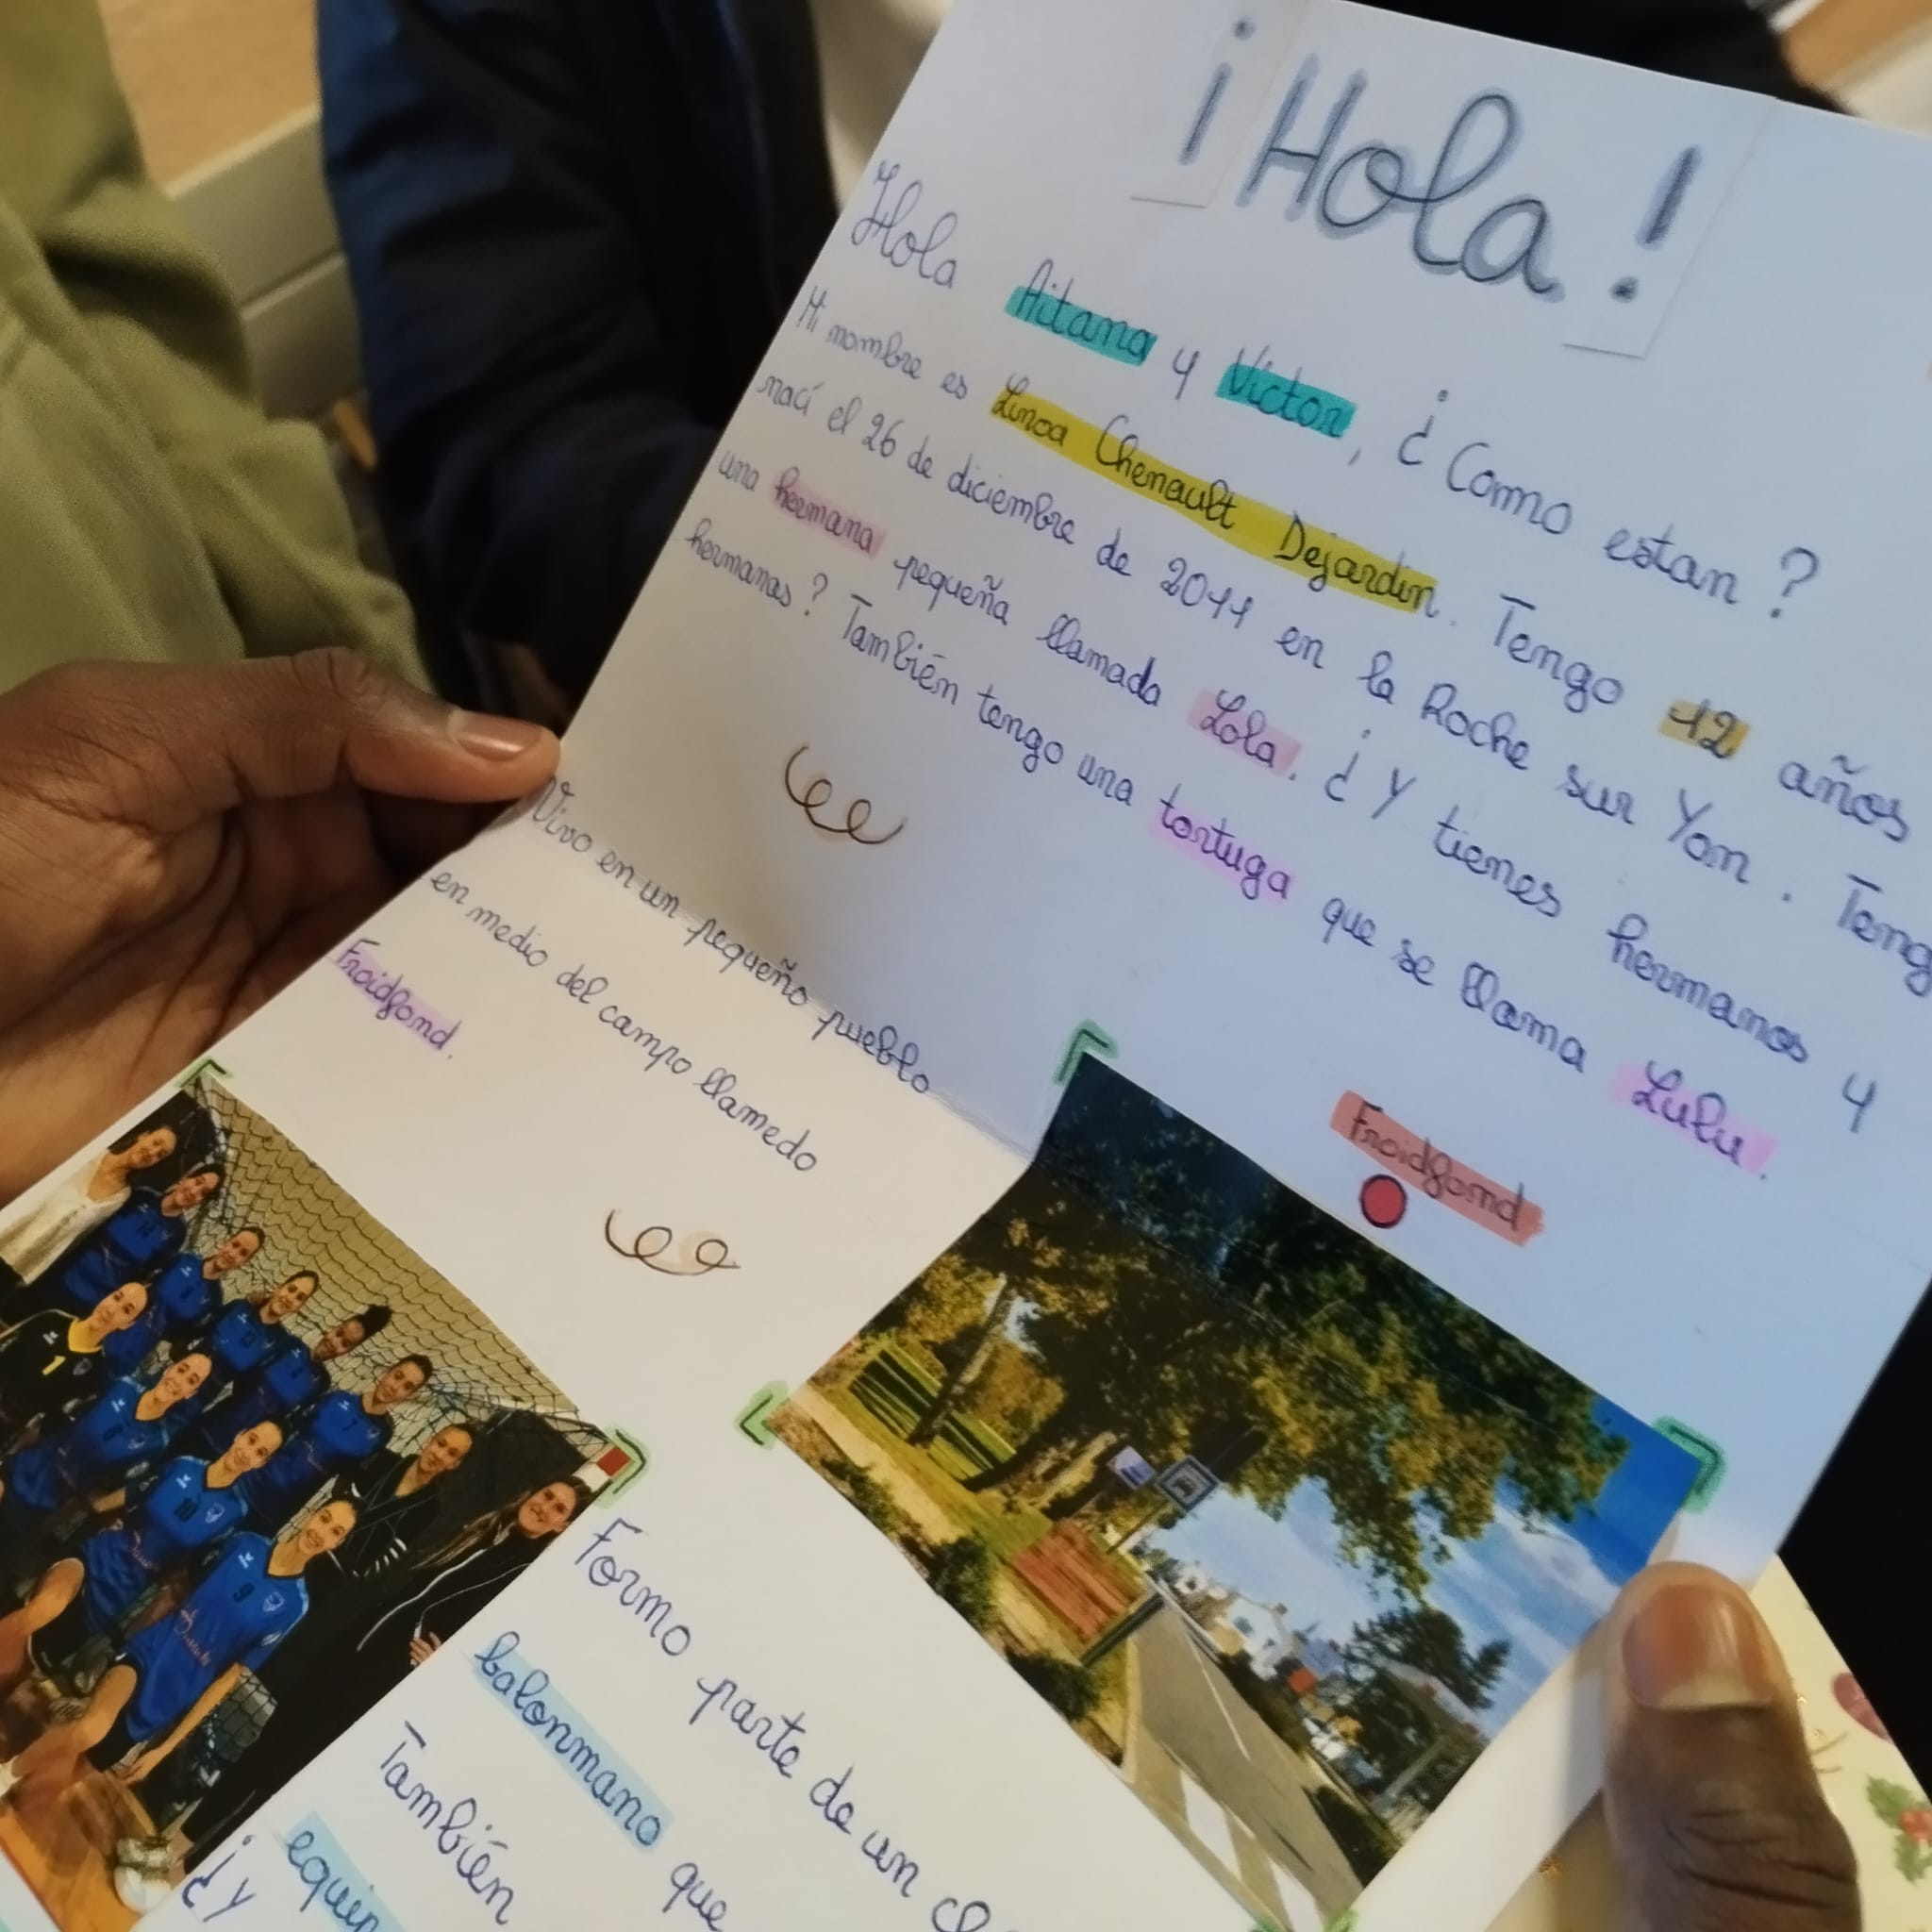 ¡Hola!
Hola Aitana y Victor, ¿Como estan?
Mi nombre es Linoa Chenault Dejardin. Tengo 12 años
nací el 26 de diciembre de 2011 en la Roche sur Yon. Teng
una hermana pequeña llamada Lola. ¿Y tienes hermanos y
hermanas? También tengo una tortuga que se llama Lulu.
Vivo en un pequeño pueblo
en medio del campo llamedo
Froidfond.
Froidfond
Formo parte de un
balonmano que
También
equip
¿Y